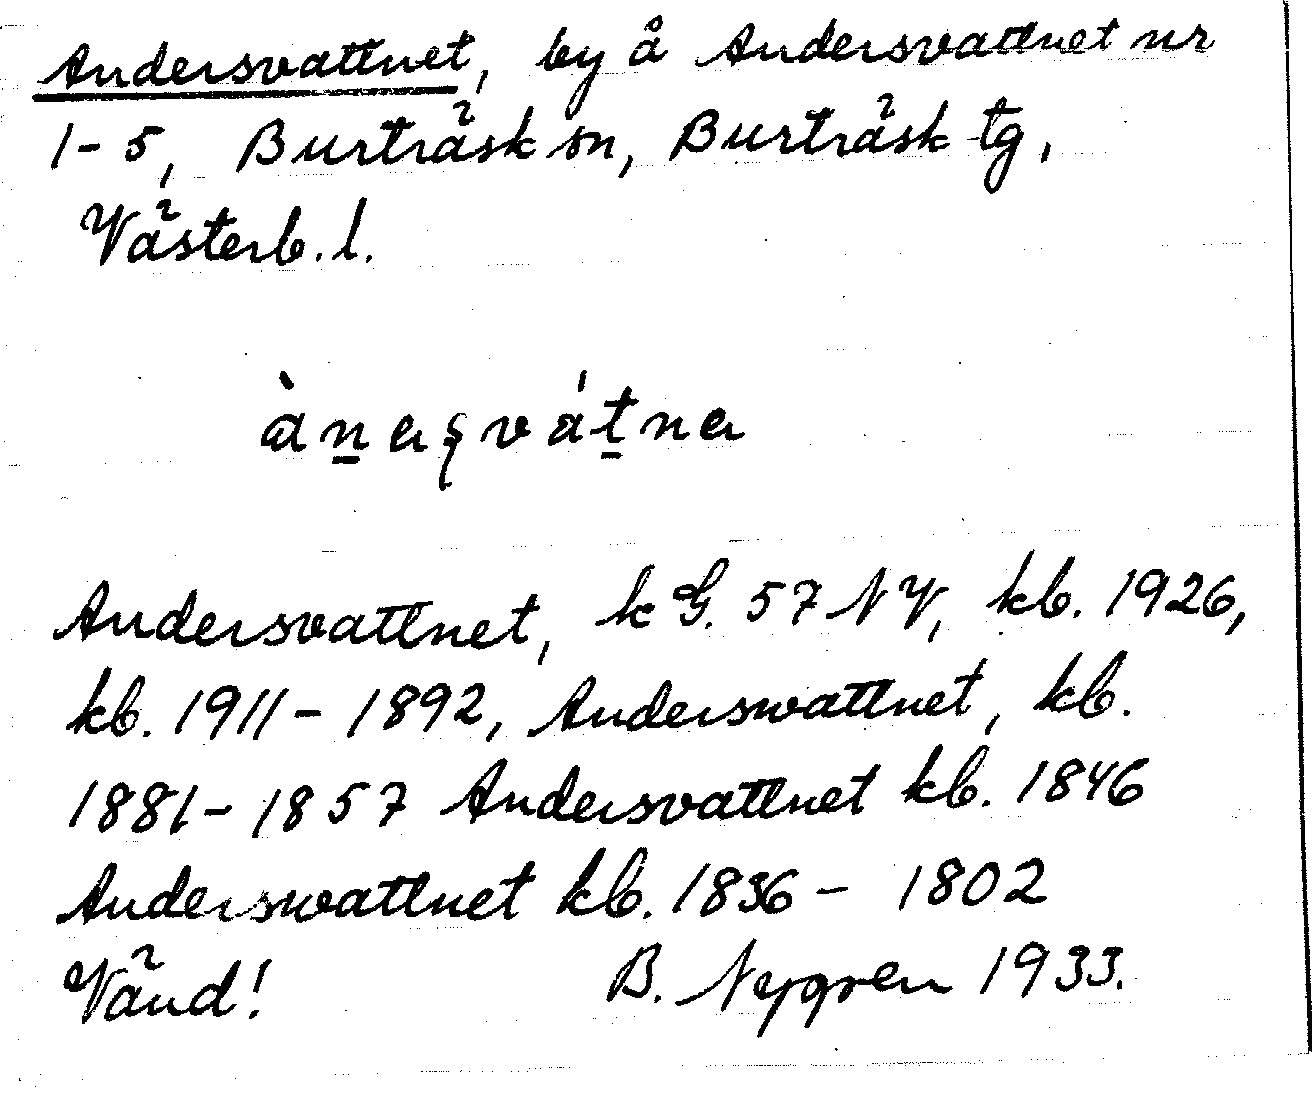 Andersvattnet, by å Andersvattnet nr
1-5, Burträsk sn, Burträsk tg,
Västerb. l.
àn̲aʂvát̲na
Andersvattnet, k G. 57 NV, kb. 1926,
kb. 1911-1892, Anderswattnet, kb.
1881-1857 Andersvattnet kb. 1846
Anderswattnet kb. 1836 - 1802
Vänd! B. Nygren 1933.